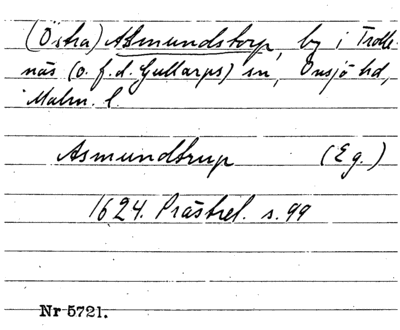 (Östra) Asmundstorp, by i Trolle-
näs (o. f. d. Gullarps) sn, Onsjö hd,
Malm. l.
Asmundtrup (Eg.)
1624. Prästrel. s. 99
Nr 5721.